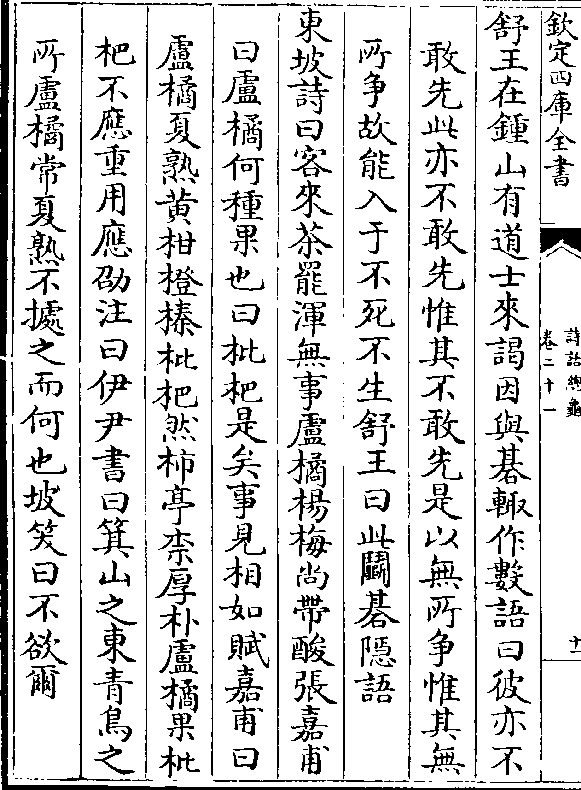 欽定四庫全書
詩話總龜
卷二十一
十一
舒王在鍾山有道士來謁因與棊輙作數語曰彼亦不
敢先此亦不敢先惟其不敢先是以無所争惟其無
所争故能入于不死不生舒王曰此鬭棊隠語
東坡詩曰客來茶罷渾無事盧橘楊梅尚帶酸張嘉甫
曰盧橘何種果也曰枇杷是矣事見相如賦嘉甫曰
盧橘夏熟黄柑橙榛枇杷然柿亭柰厚朴盧橘果枇
杷不應重用應劭注曰伊尹書曰箕山之東青鳥之
所盧橘常夏熟不㩀之而何也坡笑曰不欲爾